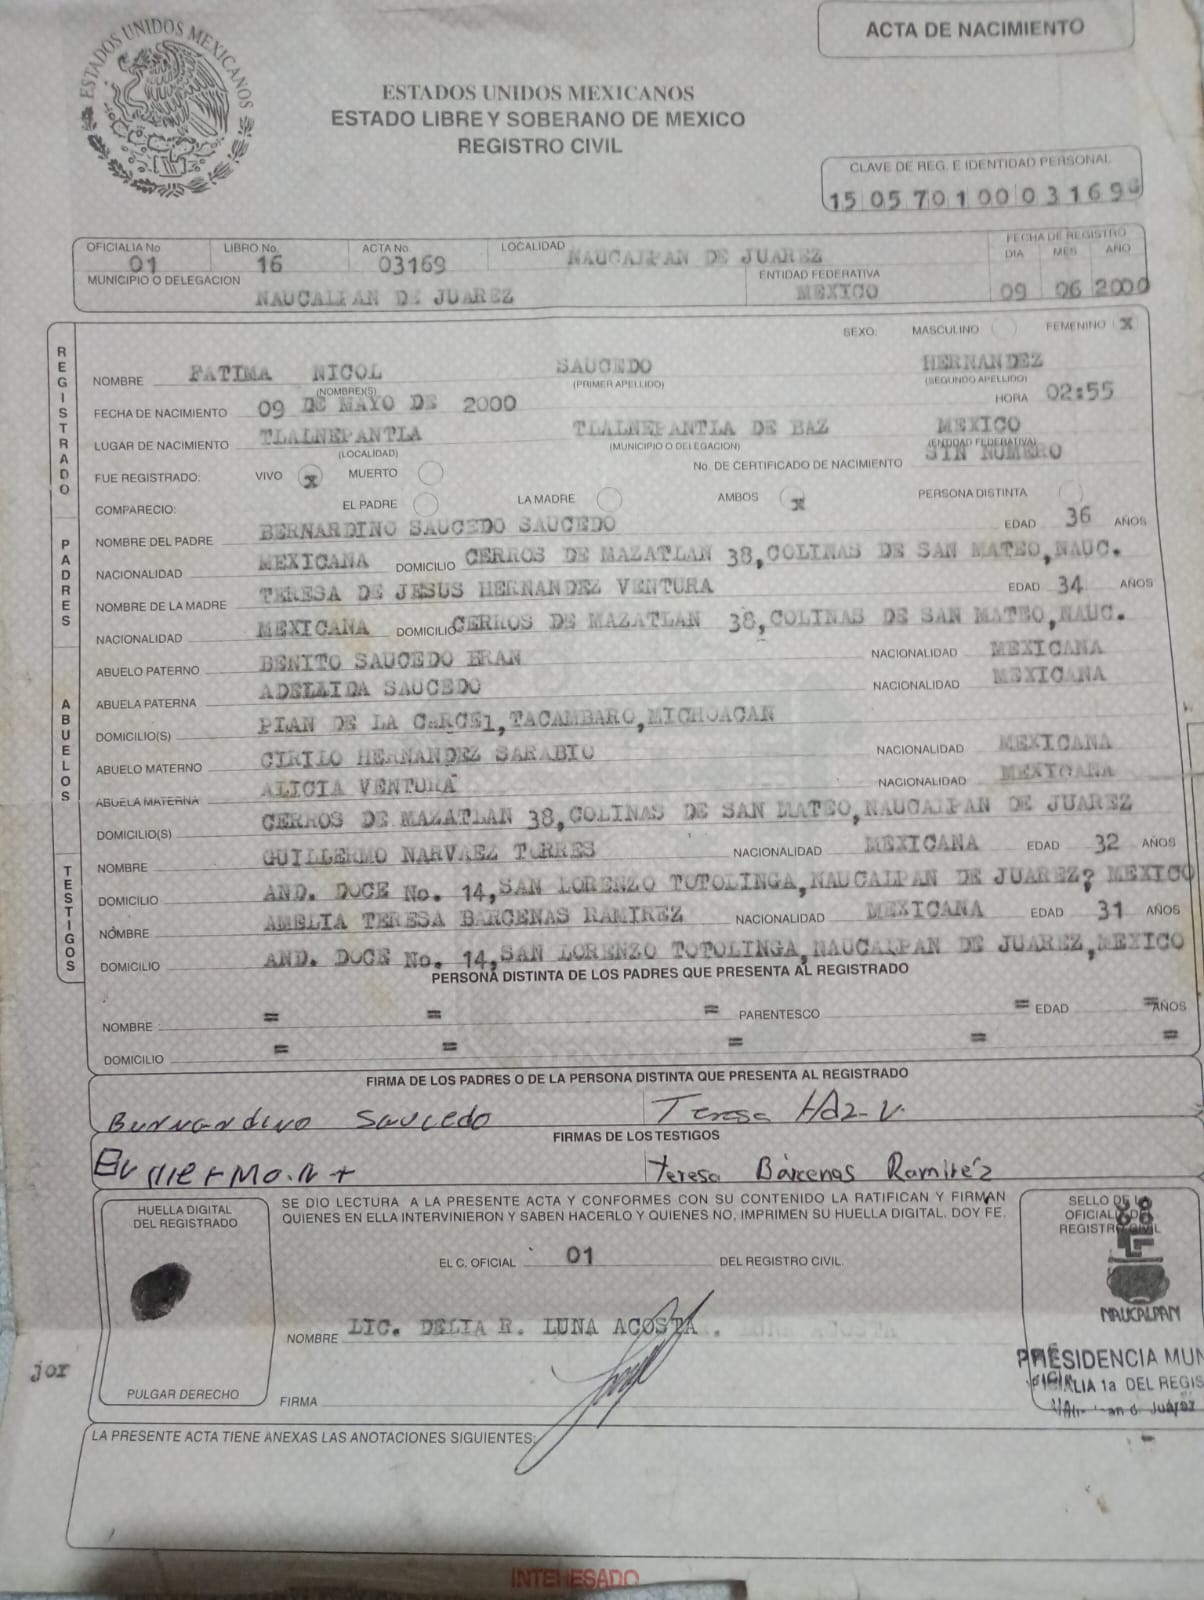 ACTA DE NACIMIENTO
ESTADOS UNIDOS MEXICANOS
ESTADOS UNIDOS MEXICANOS
ESTADO LIBRE Y SOBERANO DE MEXICO
REGISTRO CIVIL
CLAVE DE REG. E IDENTIDAD PERSONAL
15 05 7 01 00 0 3 1 6 9
OFICIALIA No LIBRO No. ACTA No. LOCALIDAD NAUCALPAN DE JUAREZ FECHA DE REGISTRO
01 16 03169 DIA MES AÑO
MUNICIPIO O DELEGACION NAUCALPAN DE JUAREZ ENTIDAD FEDERATIVA MEXICO 09 06 2000
REGISTRADO
SEXO: MASCULINO FEMENINO X
NOMBRE FATIMA NICOL SAUCEDO HERNANDEZ
(NOMBRE(S) (PRIMER APELLIDO) (SEGUNDO APELLIDO)
FECHA DE NACIMIENTO 09 DE MAYO DE 2000 HORA 02:55
LUGAR DE NACIMIENTO TLALNEPANTLA TLALNEPANTLA DE BAZ MEXICO
(LOCALIDAD) (MUNICIPIO O DELEGACION) (ENTIDAD FEDERATIVA)
FUE REGISTRADO: VIVO X MUERTO No. DE CERTIFICADO DE NACIMIENTO SIN NUMERO
COMPARECIO: EL PADRE LA MADRE AMBOS X PERSONA DISTINTA
PADRES
NOMBRE DEL PADRE BERNARDINO SAUCEDO SAUCEDO EDAD 36 AÑOS
NACIONALIDAD MEXICANA DOMICILIO CERROS DE MAZATLAN 38,COLINAS DE SAN MATEO,NAUC.
NOMBRE DE LA MADRE TERESA DE JESUS HERNANDEZ VENTURA EDAD 34 AÑOS
NACIONALIDAD MEXICANA DOMICILIO CERROS DE MAZATLAN 38,COLINAS DE SAN MATEO,NAUC.
ABUELOS
ABUELO PATERNO BENITO SAUCEDO NACIONALIDAD MEXICANA
ABUELA PATERNA ADELAIDA SAUCEDO NACIONALIDAD MEXICANA
DOMICILIO(S) PLAN DE LA CaRCEl,TACAMBARO,MICHOACAN
ABUELO MATERNO CIRILO HERNANDEZ SARABIO NACIONALIDAD MEXICANA
ABUELA MATERNA ALICIA VENTURA NACIONALIDAD MEXICANA
DOMICILIO(S) CERROS DE MAZATLAN 38,COLINAS DE SAN MATEO,NAUCALPAN DE JUAREZ
TESTIGOS
NOMBRE GUILLERMO NARVAEZ TORRES NACIONALIDAD MEXICANA EDAD 32 AÑOS
DOMICILIO AND. DOCE No. 14,SAN LORENZO TOTOLINGA,NAUCALPAN DE JUAREZ? MEXICO
NOMBRE AMELIA TERESA BARCENAS RAMIREZ NACIONALIDAD MEXICANA EDAD 31 AÑOS
DOMICILIO AND. DOCE No. 14,SAN LORENZO TOTOLINGA,NAUCALPAN DE JUAREZ,MEXICO
PERSONA DISTINTA DE LOS PADRES QUE PRESENTA AL REGISTRADO
NOMBRE = = = PARENTESCO = EDAD = AÑOS
DOMICILIO = = = = =
FIRMA DE LOS PADRES O DE LA PERSONA DISTINTA QUE PRESENTA AL REGISTRADO
Bernardino Saucedo Teresa Hdz. V.
FIRMAS DE LOS TESTIGOS
Teresa Bárcenas Ramiréz
HUELLA DIGITAL
DEL REGISTRADO
PULGAR DERECHO
SE DIO LECTURA A LA PRESENTE ACTA Y CONFORMES CON SU CONTENIDO LA RATIFICAN Y FIRMAN
QUIENES EN ELLA INTERVINIERON Y SABEN HACERLO Y QUIENES NO, IMPRIMEN SU HUELLA DIGITAL. DOY FE.
EL C. OFICIAL 01 DEL REGISTRO CIVIL.
NOMBRE LIC. DELIA R. LUNA ACOSTA.
FIRMA
SELLO DE LA
OFICIALIA DEL
REGISTRO CIVIL
NAUCALPAN
PRESIDENCIA MUN
OFICIALIA 1a DEL REGIS
Juárez
jor
LA PRESENTE ACTA TIENE ANEXAS LAS ANOTACIONES SIGUIENTES:
INTERESADO